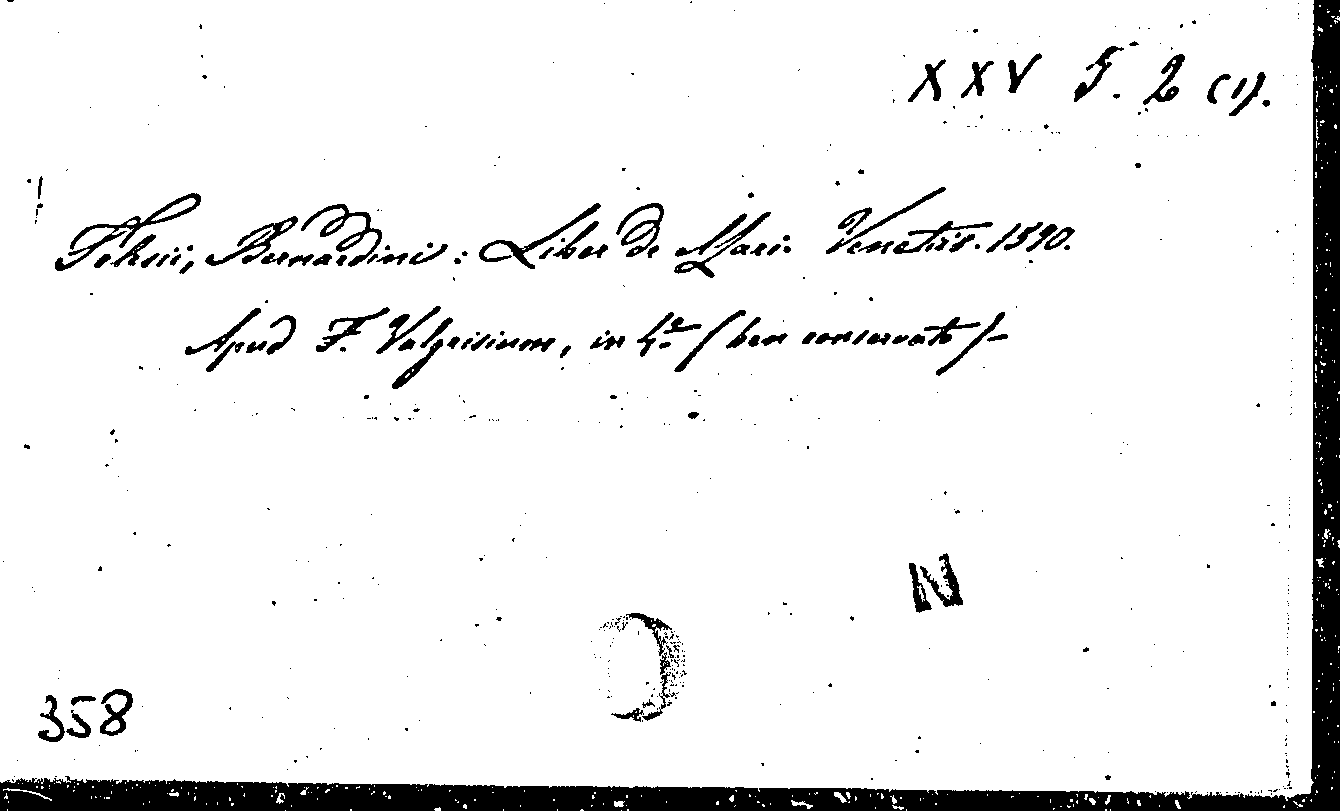 XXV F. 2 (1).
Telesii, Bernardini: Liber de Mari. Venetiis. 1590.
Apud F. Valgrisium, in 4.º (ben conservato)-
N
358